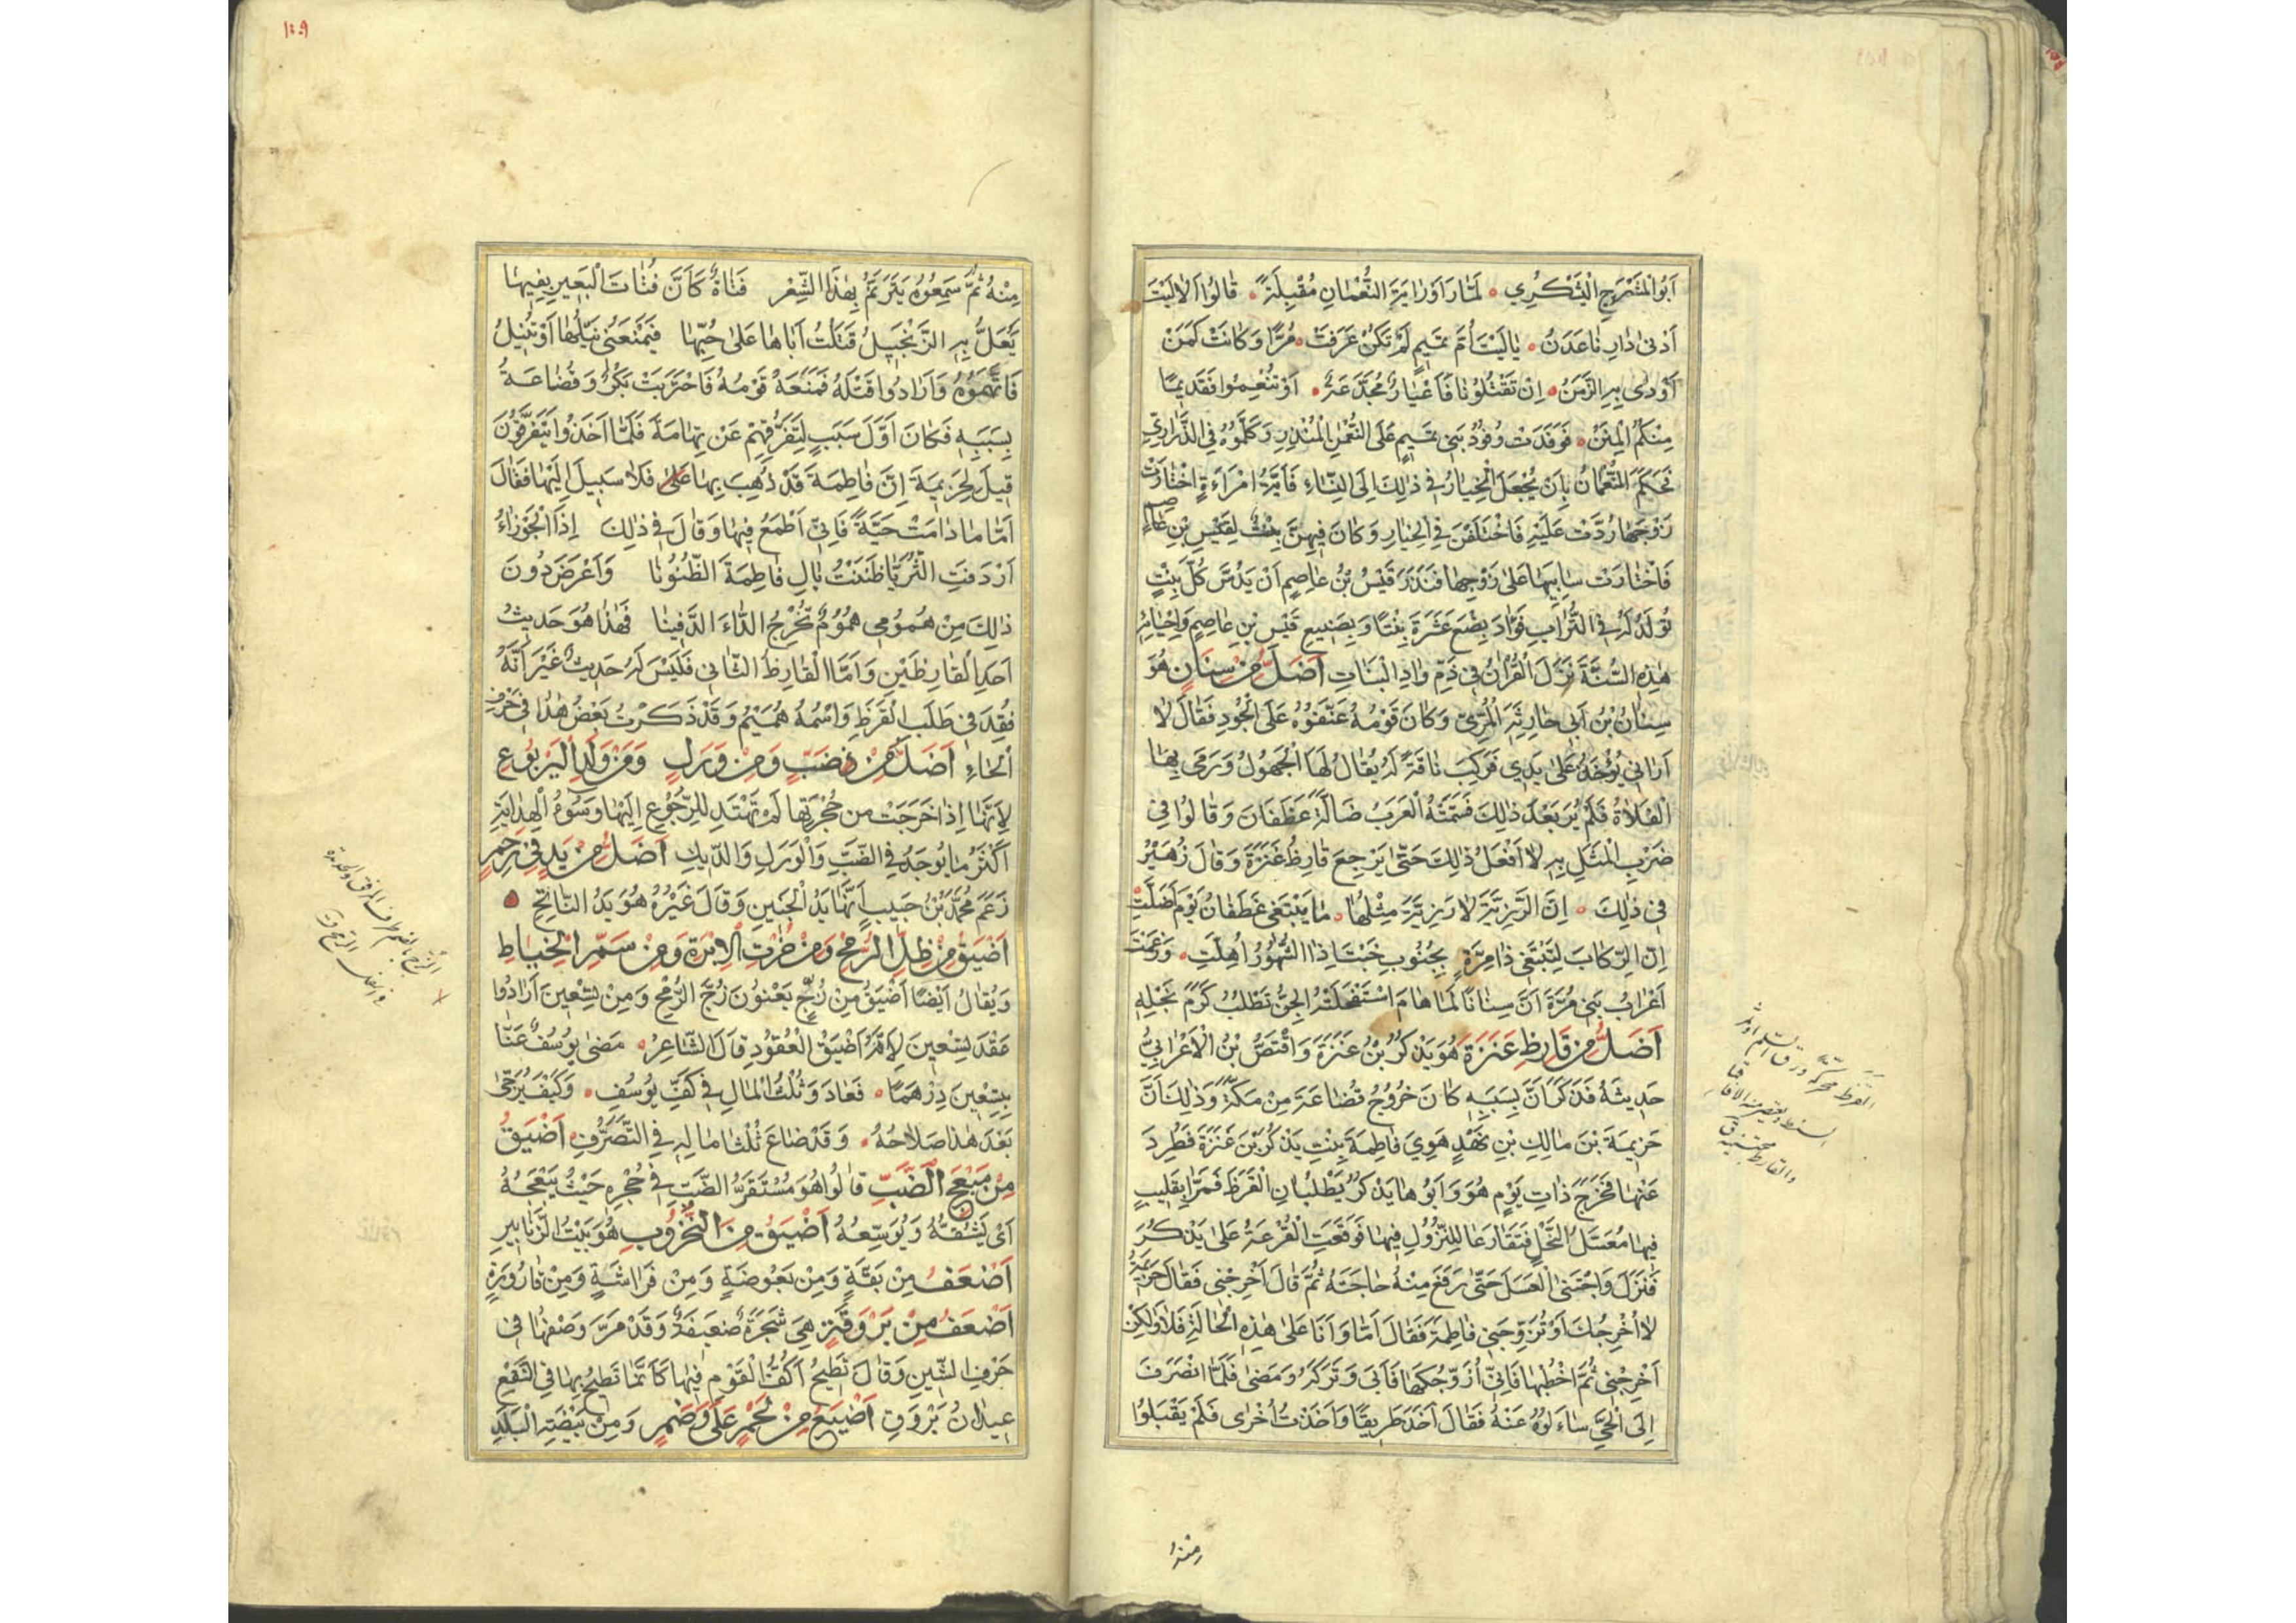 أَبُو الْمُشَمْرَجِ الْيَشْكُرِي لَمَّا رَاَوْا رَايَةَ النُّعْمَانِ مُقْبِلَةً قَالُوا اَلَا لَيْتَ
اَدْنىٰ دَارِنَا عَدَنُ يَا لَيْتَ اُمَّ تَمِيمٍ لَمْ تَكُنْ عَرَفَتْ مُرًّا وَكَانَتْ كَمَنْ
اَوْدىٰ بِهِ الزَّمَنُ اِنْ تَقْتُلُونَا فَاَعْيَارٌ مُجَدَّعَةٌ اَوْ تُنْعِمُوا فَقَدِيمًا
مِنْكُمُ الْمِنَنُ فَوَفَدَتْ وُفُودُ بَنِي تَمِيمٍ عَلَى النُّعْمٰنِ الْمُنْذِرِ وَكَلَّمُوهُ فِي الذَّرَارِيِّ
فَحَكَمَ النُّعْمَانُ بِاَنْ يُجْعَلَ الْخِيَارُ فِي ذٰلِكَ اِلَى النِّسَاءِ فَاَيَّةُ امْرَاَةٍ اخْتَارَتْ
زَوْجَهَا رُدَّتْ عَلَيْهِ فَاخْتَلَفْنَ فِي الْخِيَارِ وَكَانَ فِيهِنَّ بِنْتٌ لِقَيْسِ بْنِ عَاصِمٍ
فَاخْتَارَتْ سَابِيَهَا عَلىٰ زَوْجِهَا فَنَذَرَ قَيْسُ بْنُ عَاصِمٍ اَنْ يَدُسَّ كُلَّ بِنْتٍ
تُولَدُ لَهُ فِي التُّرَابِ فَوَاَدَ بِضْعَ عَشَرَةَ بِنْتًا وَبِصَنِيعِ قَيْسِ بْنِ عَاصِمٍ وَاِحْيَائِهِ
هٰذِهِ السُّنَّةَ نَزَلَ الْقُرْاٰنُ فِي ذَمِّ وَادِ الْبَنَاتِ اَضَلُّ مِنْ سِنَانٍ هُوَ
سِنَانُ بْنُ اَبِي حَارِثَةَ الْمُرِّيّ وَكَانَ قَوْمُهُ عَنَّفُوهُ عَلَى الْجُودِ فَقَالَ لَا
اَرَانِي يُؤْخَذُ عَلىٰ يَدِي فَرَكِبَ نَاقَةً لَهُ يُقَالُ لَهَا الْجَهُولُ وَرَمىٰ بِهَا
الْفَلَاةَ فَلَمْ يُرَ بَعْدَ ذٰلِكَ فَسَمَّتْهُ الْعَرَبُ ضَالَّةَ غَطَفَانَ وَقَالُوا فِي
ضَرْبِ الْمَثَلِ بِهِ لَا اَفْعَلُ ذٰلِكَ حَتّىٰ يَرْجِعَ قَارِظُ عَنَزَةَ وَقَالَ زُهَيْرٌ
فِي ذٰلِكَ اِنَّ الرَّزِيَّةَ لَا رَزِيَّةَ مِثْلُهَا مَا يَبْتَغِي غَطَفَانُ يَوْمَ اَضَلَّتِ
اِنَّ الرِّكَابَ لَتَبْتَغِي ذَا مِرَّةٍ بِجُنُوبِ خَبْتَ اِذَا الشُّهُورُ اُهِلَّتِ وَزَعَمَتْ
اَعْرَابُ بَنِي مُرَّةَ اَنَّ سِنَانًا لَمَّا هَامَ اسْتَفْحَلَتْهُ الْجِنُّ تَطْلُبُ كَرَمَ نَجْلِهِ
اَضَلُّ مِنْ قَارِظِ عَنَزَةَ هُوَ يَذْكُرُ بْنُ عَنَزَةَ وَاقْتَصَّ بْنُ الْاَعْرَابِيُّ
حَدِيثَهُ فَذَكَرَ اَنَّ بِسَبَبِهِ كَانَ خُرُوجُ قُضَاعَةَ مِنْ مَكَّةَ وَذٰلِكَ اَنَّ
حَزِيمَةَ بْنَ مَالِكِ بْنِ نَهْدٍ هَوِيَ فَاطِمَةَ بِنْتَ يَذْكُرَ بْنِ عَنَزَةَ فَطُرِدَ
عَنْهَا فَخَرَجَ ذَاتَ يَوْمٍ هُوَ وَاَبُوهَا يَذْكُرُ يَطْلُبَانِ الْقَرَظَ فَمَرَّا بِقَلِيبٍ
فِيهَا مُعَسَّلُ النَّحْلِ فَتَقَارَعَا لِلنُّزُولِ فِيهَا فَوَقَعَتِ الْقُرْعَةُ عَلىٰ يَذْكُرَ
فَنَزَلَ وَاجْتَنَى الْعَسَلَ حَتّىٰ رَفَعَ مِنْهُ حَاجَتَهُ ثُمَّ قَالَ اَخْرِجْنِي فَقَالَ حَزِيمَةُ
لَا اُخْرِجُكَ اَوْ تُزَوِّجَنِي فَاطِمَةَ فَقَالَ اَمَّا وَاَنَا عَلىٰ هٰذِهِ الْحَالَةِ فَلَا وَلٰكِنْ
اَخْرِجْنِي ثُمَّ اخْطُبْهَا فَاِنِّي اُزَوِّجُكَهَا فَاَبىٰ وَتَرَكَهُ وَمَضىٰ فَلَمَّا انْصَرَفَ
اِلَى الْحَيِّ سَاءَلُوهُ عَنْهُ فَقَالَ اَخَذَ طَرِيقًا وَاَخَذْتُ اُخْرىٰ فَلَمْ يَقْبَلُوا
القرظ محركة ورق السلم او ثمر
السنط ويعتصر منه الاقاقيا
والقارظ مجتنيه ق
منه
١٥٩
مِنْهُ ثُمَّ سَمِعُوهُ يَتَرَنَّمُ بِهٰذَا الشِّعْرِ فَتَاةٌ كَاَنَّ فُتَاتَ الْعَبِيرِ بِفِيهَا
يُعَلُّ بِهِ الزَّنْجَبِيلُ قَتَلْتُ اَبَاهَا عَلىٰ حُبِّهَا فَيَمْنَعُنِي نَيْلَهَا اَوْ تُنِيلُ
فَاتَّهَمُوهُ وَاَرَادُوا قَتْلَهُ فَمَنَعَهُ قَوْمُهُ فَاحْتَرَبَتْ بَكْرٌ وَقُضَاعَةُ
بِسَبَبِهِ فَكَانَ اَوَّلَ سَبَبٍ لِتَفَرُّقِهِمْ عَنْ تِهَامَةَ فَلَمَّا اَخَذُوا يَتَفَرَّقُونَ
قِيلَ لِحَزِيمَةَ اِنَّ فَاطِمَةَ قَدْ ذُهِبَ بِهَا فَلَا سَبِيلَ اِلَيْهَا فَقَالَ
اَمَّا مَا دَامَتْ حَيَّةً فَاِنِّي اَطْمَعُ فِيهَا وَقَالَ فِي ذٰلِكَ اِذَا الْجَوْزَاءُ
اَرْدَفَتِ الثُّرَيَّا ظَنَنْتُ بِاٰلِ فَاطِمَةَ الظُّنُونَا وَاَعْرَضَ دُونَ
ذٰلِكَ مِنْ هُمُومِي هُمُومٌ تُخْرِجُ الدَّاءَ الدَّفِينَا فَهٰذَا هُوَ حَدِيثُ
اَحَدِ الْقَارِظَيْنِ وَاَمَّا الْقَارِظُ الثَّانِي فَلَيْسَ لَهُ حَدِيثٌ غَيْرَ اَنَّهُ
فُقِدَ فِي طَلَبِ الْقَرَظِ وَاسْمُهُ هُمَيْمٌ وَقَدْ ذَكَرْتُ بَعْضَ هٰذَا فِي حَرْفِ
الْخَاءِ اَضَلُّ مِنْ ضَبٍّ وَمِنْ وَرَلٍ وَمِنْ وَلَدِ الْيَرْبُوعِ
لِاَنَّهَا اِذَا خَرَجَتْ مِنْ جُحْرَتِهَا لَمْ تَهْتَدِ لِلرُّجُوعِ اِلَيْهَا وَسُوءُ الْهِدَايَةِ
اَكْثَرُ مَا يُوجَدُ فِي الضَّبِّ وَالْوَرَلِ وَالدِّيكِ اَضَلُّ مِنْ يَدٍ فِي رَحِمٍ
زَعَمَ مُحَمَّدُ بْنُ حَبِيبٍ اَنَّهَا يَدُ الْجَنِينِ وَقَالَ غَيْرُهُ هُوَ يَدُ النَّاتِجِ
اَضْيَقُ مِنْ ظِلِّ الرُّمْحِ وَمِنْ خُرْتِ الْاِبْرَةِ وَمِنْ سَمِّ الْخِيَاطِ
وَيُقَالُ اَيْضًا اَضْيَقُ مِنْ زُجٍّ يَعْنُونَ زُجَّ الرُّمْحِ وَمِنْ تِسْعِينَ اَرَادُوا
عَقْدَ تِسْعِينَ لِاَنَّهُ اَضْيَقُ الْعُقُودِ قَالَ الشَّاعِرُ مَضىٰ يُوسُفٌ عَنَّا
بِتِسْعِينَ دِرْهَمًا فَعَادَ وَثُلْثُ الْمَالِ فِي كَفِّ يُوسُفِ وَكَيْفَ يُرَجّىٰ
بَعْدَ هٰذَا صَلَاحُهُ وَقَدْ ضَاعَ ثُلْثَا مَالِهِ فِي التَّصَرُّفِ اَضْيَقُ
مِنْ مَبْعَجِ الضَّبِّ قَالُوا هُوَ مُسْتَقَرُّ الضَّبِّ فِي جُحْرِهِ حَيْثُ يَبْعَجُهُ
اَيْ يَشُقُّهُ وَيُوَسِّعُهُ اَضْيَقُ مِنَ النُّخْرُوبِ هُوَ بَيْتُ الزَّنَابِيرِ
اَضْعَفُ مِنْ بَقَّةٍ وَمِنْ بَعُوضَةٍ وَمِنْ فَرَاشَةٍ وَمِنْ قَارُورَةٍ
اَضْعَفُ مِنْ بَرْوَقَةٍ هِيَ شَجَرَةٌ ضَعِيفَةٌ وَقَدْ مَرَّ وَصْفُهَا فِي
حَرْفِ الشِّينِ وَقَالَ تَطِيحُ اَكُفُّ الْقَوْمِ فِيهَا كَاَنَّمَا تَطِيحُ بِهَا فِي النَّقْعِ
عِيدَانُ بَرْوَقِ اَضْيَعُ مِنْ لَحْمٍ عَلىٰ وَضَمٍ وَمِنْ بَيْضَةِ الْبَلَدِ
الزج بالضم طرف المرفق والحديدة
في اسفل الرمح ق